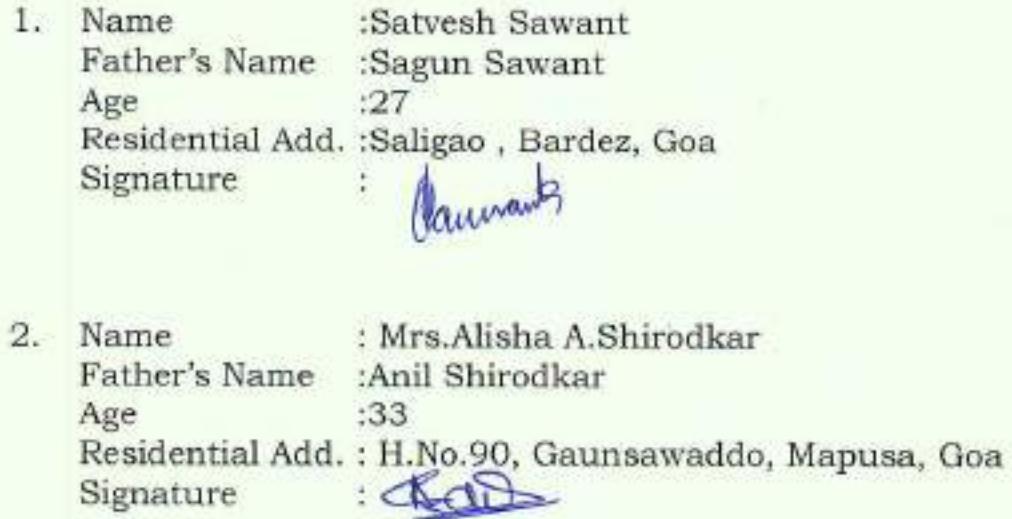 1. Name :Satvesh Sawant
Father's Name :Sagun Sawant
Age :27
Residential Add. :Saligao , Bardez, Goa
Signature :
2. Name : Mrs.Alisha A.Shirodkar
Father's Name :Anil Shirodkar
Age :33
Residential Add. : H.No.90, Gaunsawaddo, Mapusa, Goa
Signature :